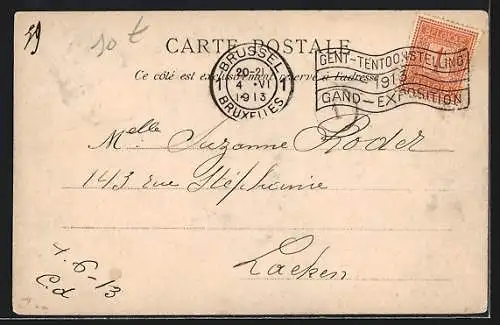 10 t
CARTE POSTALE
Ce côté est exclusivement réservé à l'adresse
BRUSSEL
20-21
1 4 VI 1
1913
BRUXELLES
GENT-TENTOONSTELLING
1913
GAND-EXPOSITION
Melle Suzanne Roder
143 rue Stéphanie
Laeken
4.6-13